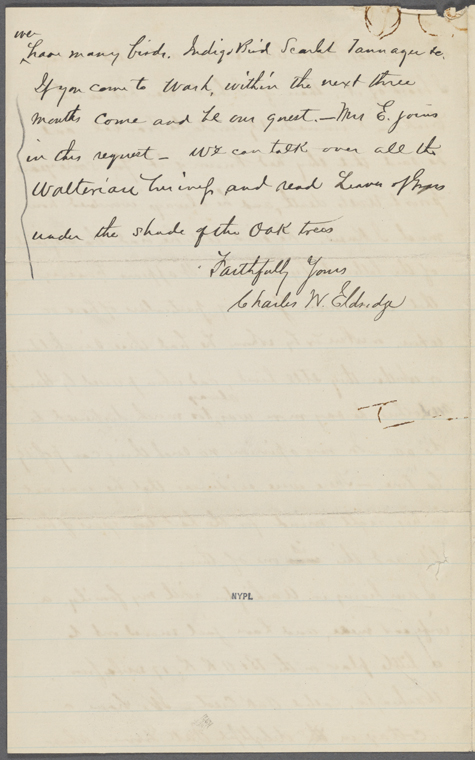 over
have many birds. Indigo Bird Scarlet Tannager &c.
If you come to Wash, within the next three
months come and be our guest. — Mrs E. joins
in this request — We can talk over all the
Walterian and read Leaves of Grass
under the shade of the Oak trees
Faithfully Yours
Charles W. Eldridge
NYPL